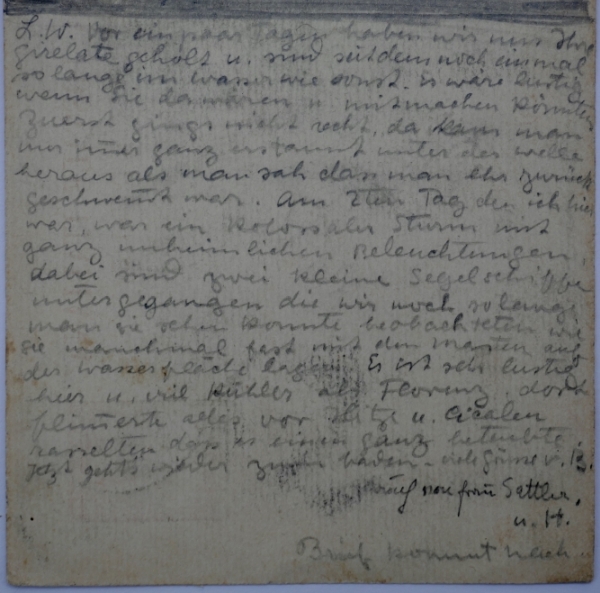 L. W. Vor ein paar Tagen haben wir uns Ihre
geholt u. sind seitdem noch einmal
so lange im Wasser wie sonst. Es wäre lustig
wenn Sie da wären u mitmachen könnten
Zuerst gings nicht recht, da kam man
nur imer ganz erstaunt unter der Welle
heraus als man sah dass man eher zurück
geschwemt war. Am 2ten Tag den ich hier
war, war ein kolossaler Sturm mit
ganz unheimlichen Beleuchtungen,
dabei sind zwei kleine Segelschiffe
untergegangen die wir noch solange
man sie sehen konnte beobachteten wie
sie manchmal fast mit den Masten auf
der Wasserfläche lagen. Es ist sehr lustig
hier u. viel kühler als Florenz, dort
flimerte alles vor Hitze u. Cicalen
rasselten dass es einen ganz betäubte.
Jetzt gehts wieder zum baden - viele Grüsse v. B.
auch von frau Sattler.
u. H.
Brief kommt nach